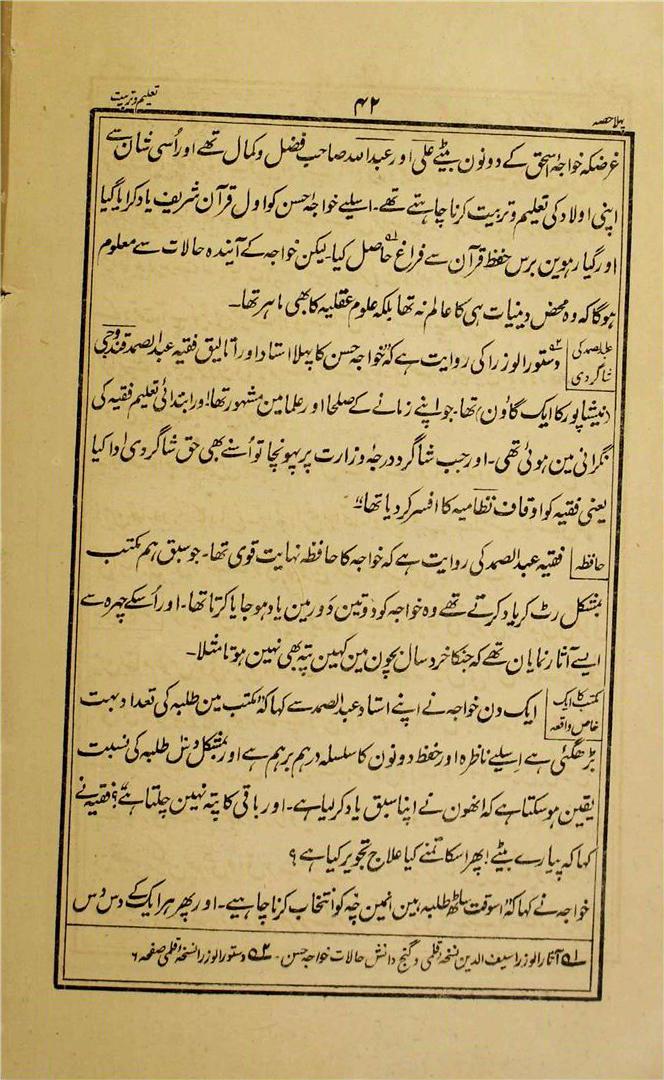 پہلا حصہ
۴۲
تعلیم و تربیت
غرضکہ خواجہ اسحٰق کے دونون بیٹے علی اور عبد اللہ صاحب فضل و کمال تھے اور اُسی شان سے
اپنی اولاد کی تعلیم و تربیت کرنا چاہتے تھے۔ اسلیے خواجہ احسن کو اول قرآن شریف یاد کرایا گیا
اور گیارہوین برس حفظ قرآن سے فراغ حاصل کیا۔ لیکن خواجہ کے آیندہ حالات سے معلوم
ہوگا کہ وہ محض دینیات ہی کا عالم نہ تھا بلکہ علوم عقلیہ کا بھی ماہر تھا۔
عبد الصمد کی شاگردی
دستور الوزرا کی روایت ہے کہ "خواجہ حسن کا پہلا استاد اور اتالیق فقیہ عبد الصمد فندورجی
(نیشاپور کا ایک گاؤن) تھا۔ جو اپنے زمانے کے صلحا اور علما مین مشہور تھا۔ اور ابتدائی تعلیم فقیہ کی
نگرانی مین ہوئی تھی۔ اور جب شاگرد درجۂ وزارت پر پہونچا تو اُسنے بھی حق شاگردی ادا کیا
یعنی فقیہ کو اوقاف نظامیہ کا افسر کر دیا تھا"
حافظہ
فقیہ عبد الصمد کی روایت ہے کہ خواجہ کا حافظہ نہایت قوی تھا۔ جو سبق ہم مکتب
بمشکل رٹ کر یاد کرتے تھے وہ خواجہ کو دو تین دَور مین یاد ہو جایا کرتا تھا۔ اور اُسکے چہرہ سے
ایسے آثار نمایان تھے کہ جنکا خرد سال بچون مین کہین پتہ بھی نہین ہوتا مثلا۔
مکتب کا ایک خاص واقعہ
ایک دن خواجہ نے اپنے استاد عبد الصمد سے کہا کہ "مکتب مین طلبہ کی تعداد بہت
بڑھگئی ہے اسلیے ناظرہ اور حفظ دونون کا سلسلہ درہم برہم ہے اور بمشکل دس طلبہ کی نسبت
یقین ہو سکتا ہے کہ انھون نے اپنا سبق یاد کر لیا ہے۔ اور باقی کا پتہ نہین چلتا ہے؟" فقیہ نے
کہا کہ پیارے بیٹے! پھر اسکا تمنے کیا علاج تجویز کیا ہے؟
خواجہ نے کہا کہ "اسوقت ساٹھ طلبہ ہین انمین چھ کو انتخاب کرنا چاہیے۔ اور پھر ہر ایک کے دس دس
۱؎ آثار الوزرا سیف الدین نسخۂ قلمی و گنج دانش حالات خواجہ حسن۔ ۲؎ دستور الوزرا نسخۂ قلمی صفحہ ۶